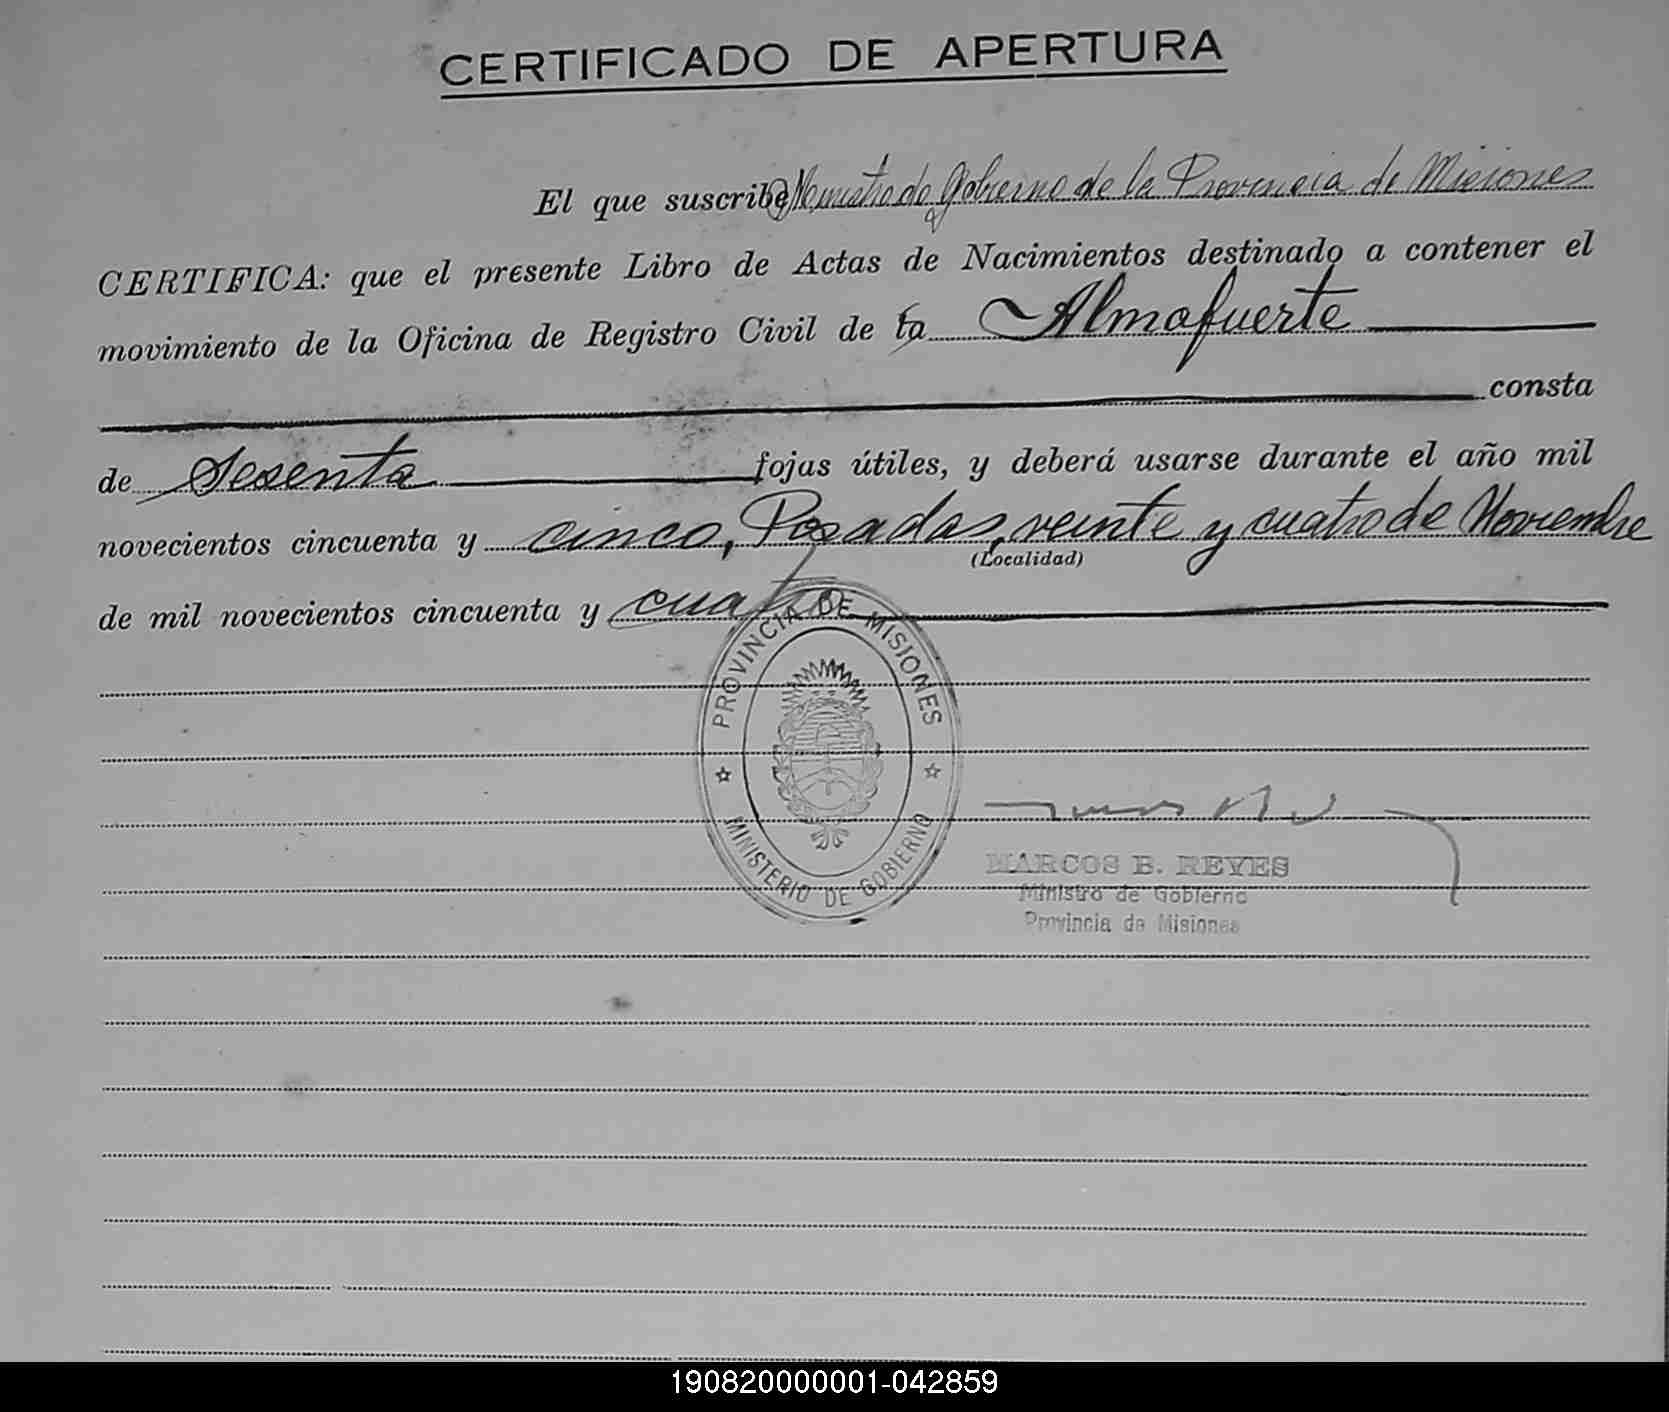 CERTIFICADO DE APERTURA
El que suscribe, Ministro de Gobierno de la Provincia de Misiones
CERTIFICA: que el presente Libro de Actas de Nacimientos destinado a contener el
movimiento de la Oficina de Registro Civil de la Almafuerte
consta
de Sesenta fojas útiles, y deberá usarse durante el año mil
novecientos cincuenta y cinco, Posadas, veinte y cuatro de Noviembre
(Localidad)
de mil novecientos cincuenta y cuatro
PROVINCIA DE MISIONES
MINISTERIO DE GOBIERNO
MARCOS B. REYES
Ministro de Gobierno
Provincia de Misiones
190820000001-042859